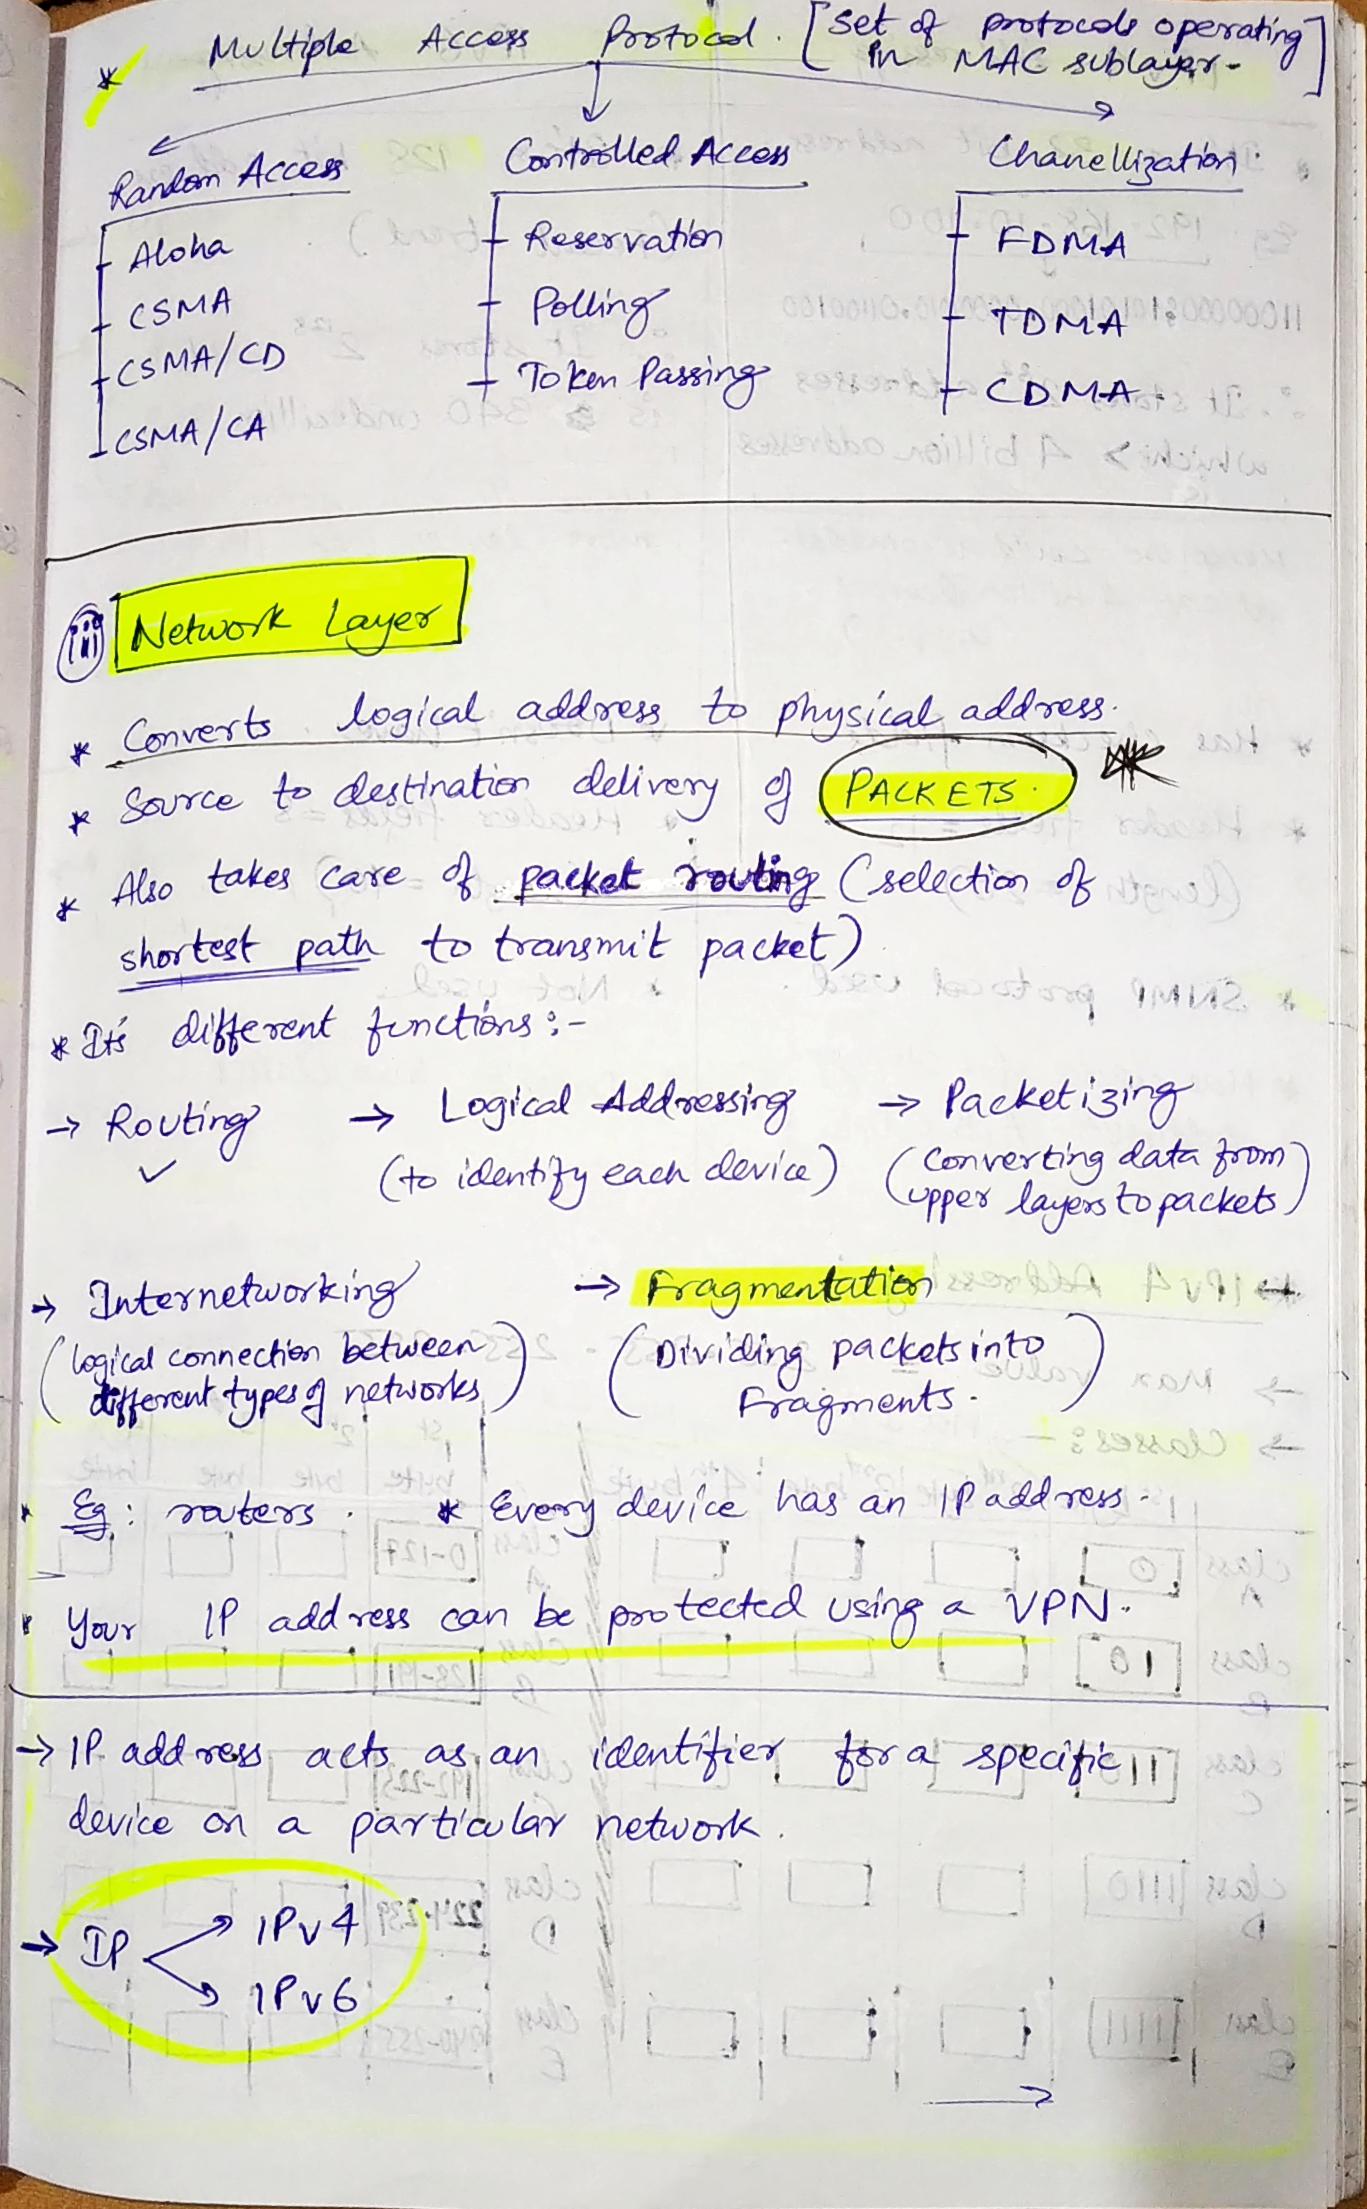 * Multiple Access Protocol. [Set of protocols operating
in MAC sublayer.]
Random Access
Aloha
CSMA
CSMA/CD
CSMA/CA
Controlled Access
Reservation
Polling
Token Passing
Chanellization.
FDMA
TDMA
CDMA
(iii) Network Layer
* Converts logical address to physical address.
* Source to destination delivery of PACKETS.
* Also takes care of packet routing (selection of
shortest path to transmit packet)
* It's different functions :-
→ Routing ✓
→ Logical Addressing
(to identify each device)
→ Packetizing
(Converting data from
upper layers to packets)
→ Internetworking
(logical connection between
different types of networks)
→ Fragmentation
(Dividing packets into
Fragments.)
* Eg: routers. * Every device has an IP address.
* Your IP address can be protected using a VPN.
→ IP address acts as an identifier for a specific
device on a particular network.
→ IP
IPv4
IPv6